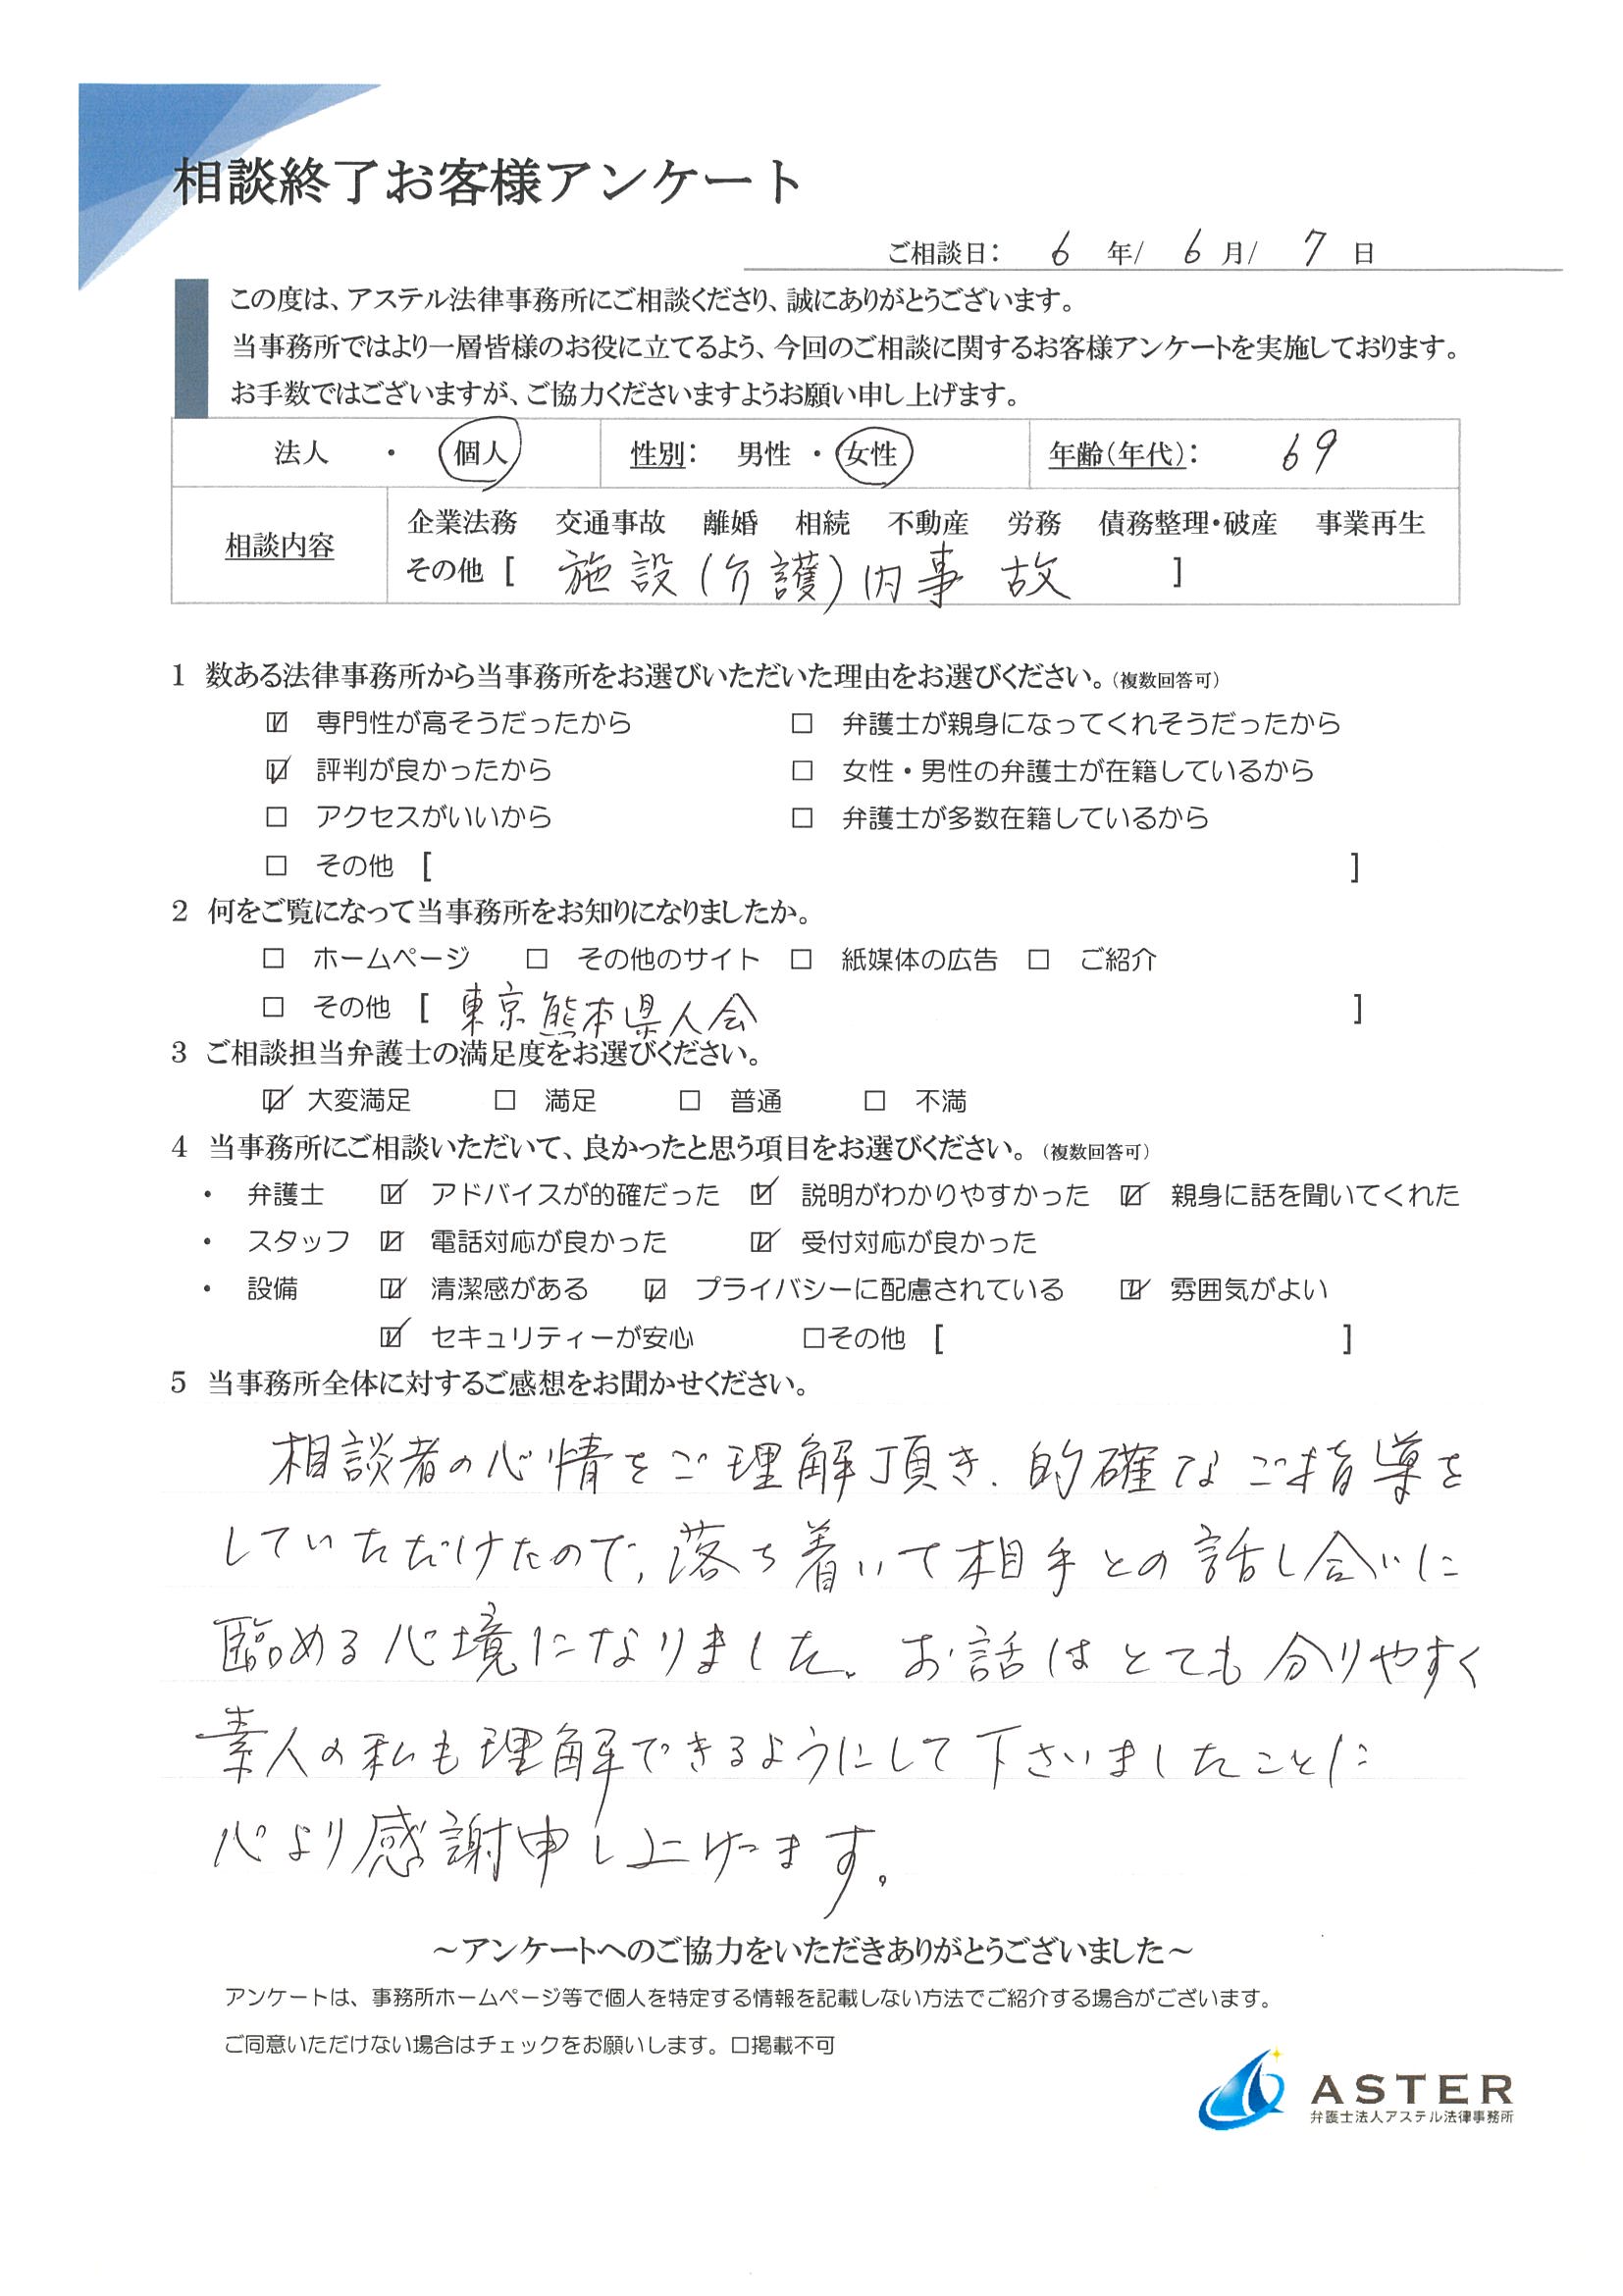 相談終了お客様アンケート
ご相談日： 6 年/ 6 月/ 7 日
この度は、アステル法律事務所にご相談くださり、誠にありがとうございます。
当事務所ではより一層皆様のお役に立てるよう、今回のご相談に関するお客様アンケートを実施しております。
お手数ではございますが、ご協力くださいますようお願い申し上げます。
法人 ・ 個人 性別： 男性 ・ 女性 年齢（年代）： 69
相談内容 企業法務 交通事故 離婚 相続 不動産 労務 債務整理・破産 事業再生
その他 [ 施設(介護)内事故 ]
1 数ある法律事務所から当事務所をお選びいただいた理由をお選びください。（複数回答可）
☑ 専門性が高そうだったから □ 弁護士が親身になってくれそうだったから
☑ 評判が良かったから □ 女性・男性の弁護士が在籍しているから
□ アクセスがいいから □ 弁護士が多数在籍しているから
□ その他 [ ]
2 何をご覧になって当事務所をお知りになりましたか。
□ ホームページ □ その他のサイト □ 紙媒体の広告 □ ご紹介
□ その他 [ 東京熊本県人会 ]
3 ご相談担当弁護士の満足度をお選びください。
☑ 大変満足 □ 満足 □ 普通 □ 不満
4 当事務所にご相談いただいて、良かったと思う項目をお選びください。（複数回答可）
・ 弁護士 ☑ アドバイスが的確だった ☑ 説明がわかりやすかった ☑ 親身に話を聞いてくれた
・ スタッフ ☑ 電話対応が良かった ☑ 受付対応が良かった
・ 設備 ☑ 清潔感がある ☑ プライバシーに配慮されている ☑ 雰囲気がよい
☑ セキュリティーが安心 □その他 [ ]
5 当事務所全体に対するご感想をお聞かせください。
相談者の心情をご理解頂き、的確なご指導を
していただけたので、落ち着いて相手との話し合いに
臨める心境になりました。お話はとても分りやすく
素人の私も理解できるようにして下さいましたことに
心より感謝申し上げます。
～アンケートへのご協力をいただきありがとうございました～
アンケートは、事務所ホームページ等で個人を特定する情報を記載しない方法でご紹介する場合がございます。
ご同意いただけない場合はチェックをお願いします。□掲載不可
ASTER
弁護士法人アステル法律事務所